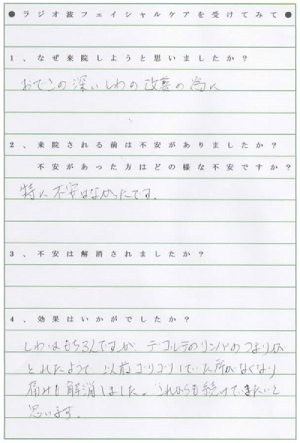 ●ラジオ波フェイシャルケアを受けてみて●
1、なぜ来院しようと思いましたか?
おでこの深いしわの改善の為に
2、来院される前は不安がありましたか?
不安があった方はどの様な不安ですか?
特に不安はなかったです。
3、不安は解消されましたか?
4、効果はいかがでしたか?
しわはもちろんですが デコルテのリンパのつまりが
とれたようで 以前コリコリしていた所がなくなり
痛みも解消しました。これからも続けていきたいと
思います。